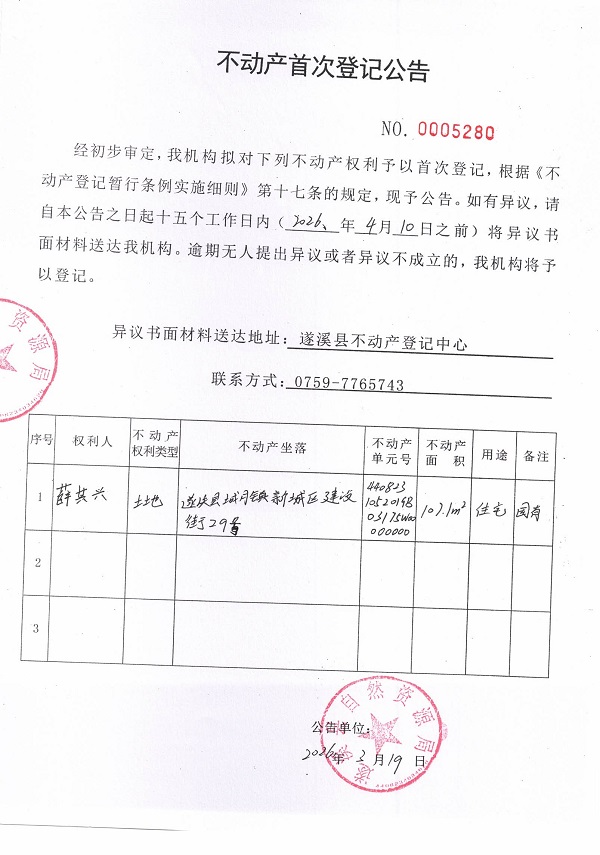 不动产首次登记公告
NO. 0005280
经初步审定，我机构拟对下列不动产权利予以首次登记，根据《不
动产登记暂行条例实施细则》第十七条的规定，现予公告。如有异议，请
自本公告之日起十五个工作日内（2026、年4月10日之前）将异议书
面材料送达我机构。逾期无人提出异议或者异议不成立的，我机构将予
以登记。
资源局
异议书面材料送达地址：遂溪县不动产登记中心
联系方式：0759-7765743
序号 权利人 不动产权利类型 不动产坐落 不动产单元号 不动产面积 用途 备注
1 薛其兴 土地 遂溪县城月镇新城区建设街29号 440823105201GB03175W00000000 107.1m² 住宅 国有
2
3
遂溪县自然资源局
公告单位：
2026年3月19日